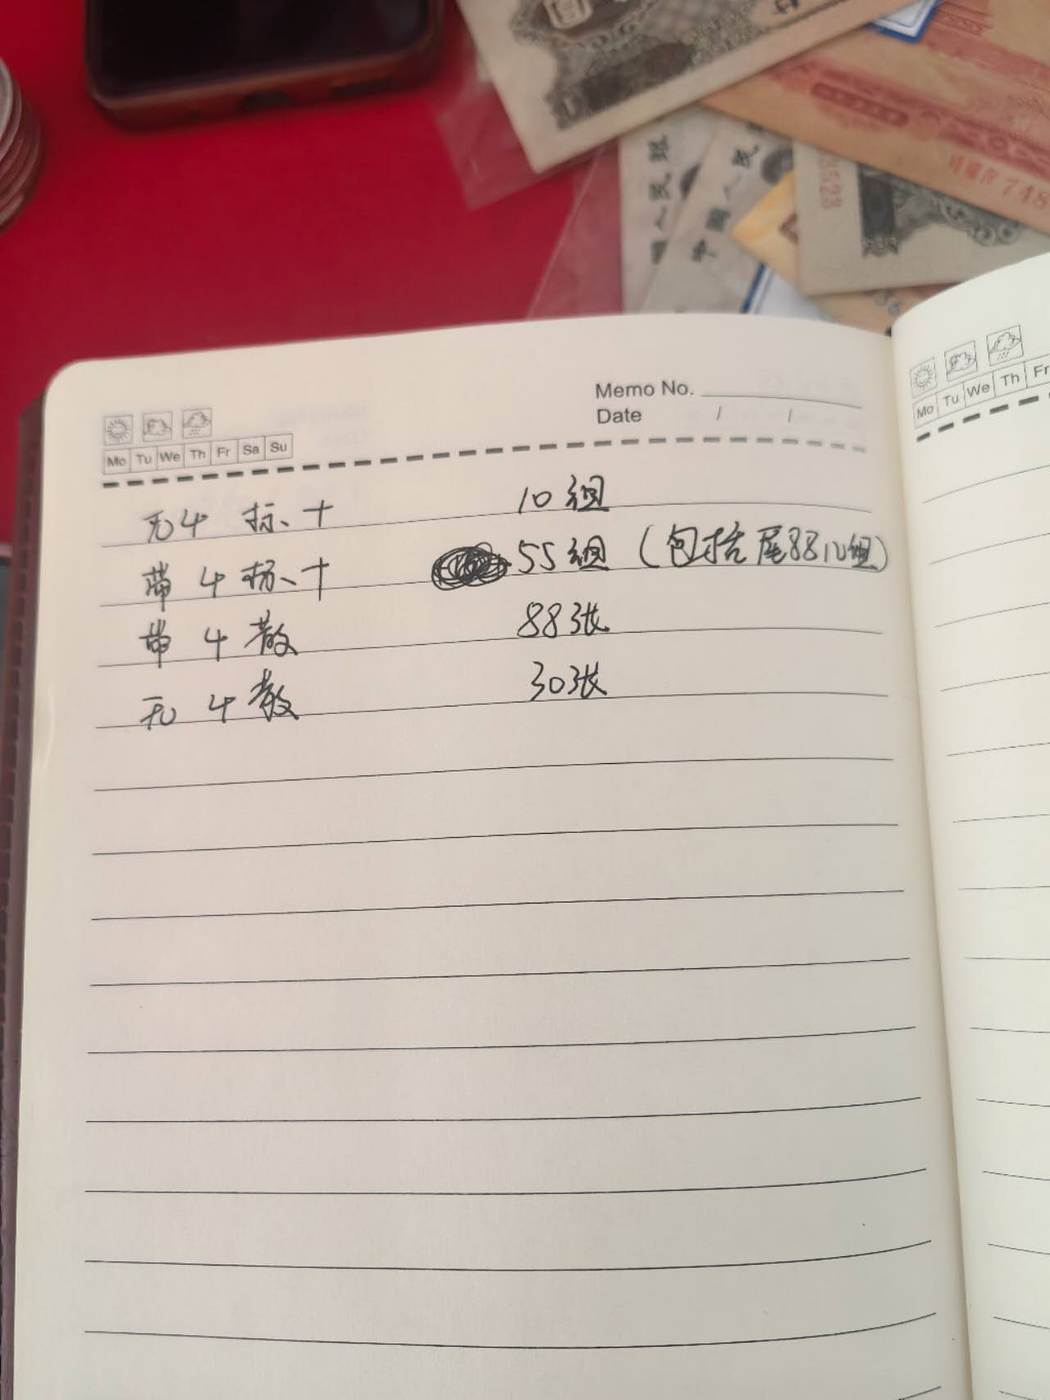 民银
国人民
中国人民
3523
748
Memo No.
Date / /
Mo Tu We Th Fr Sa Su
Mo Tu We Th Fr
无4 标十 10组
带4标十 55组(包括尾8810组)
带4散 88张
无4散 30张